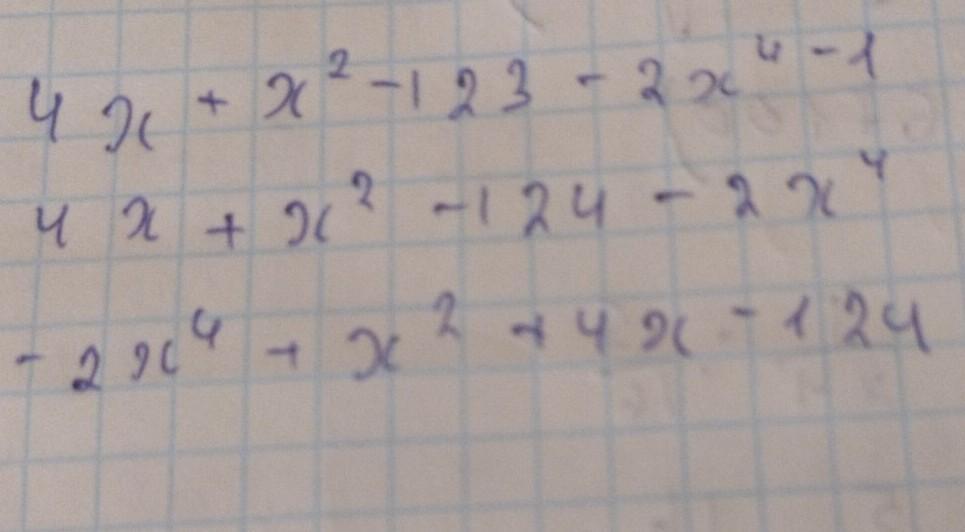 4x + x² - 123 - 2x⁴ - 1
4x + x² - 124 - 2x⁴
- 2x⁴ + x² + 4x - 124